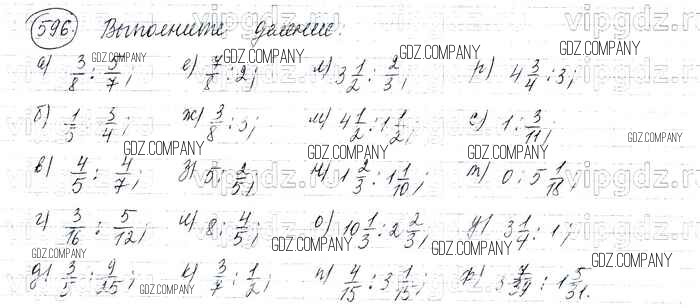 596. Выполните деление:
а) 3/8 : 3/7; е) 7/8 : 2; л) 3 1/2 : 2/3; р) 4 3/4 : 3;
б) 1/5 : 3/4; ж) 3/8 : 3; м) 4 1/2 : 1 1/2; с) 1 : 3/11;
в) 4/5 : 4/7; з) 5 : 2/5; н) 1 2/3 : 1 1/10; т) 0 : 5 1/18;
г) 3/16 : 5/12; и) 8 : 4/5; о) 10 1/3 : 2 2/3; у) 3 1/4 : 1;
д) 3/5 : 9/25; к) 3/7 : 1/2; п) 4/15 : 3 1/15; : 1 5/31.
GDZ.COMPANY
vipgdz.ru